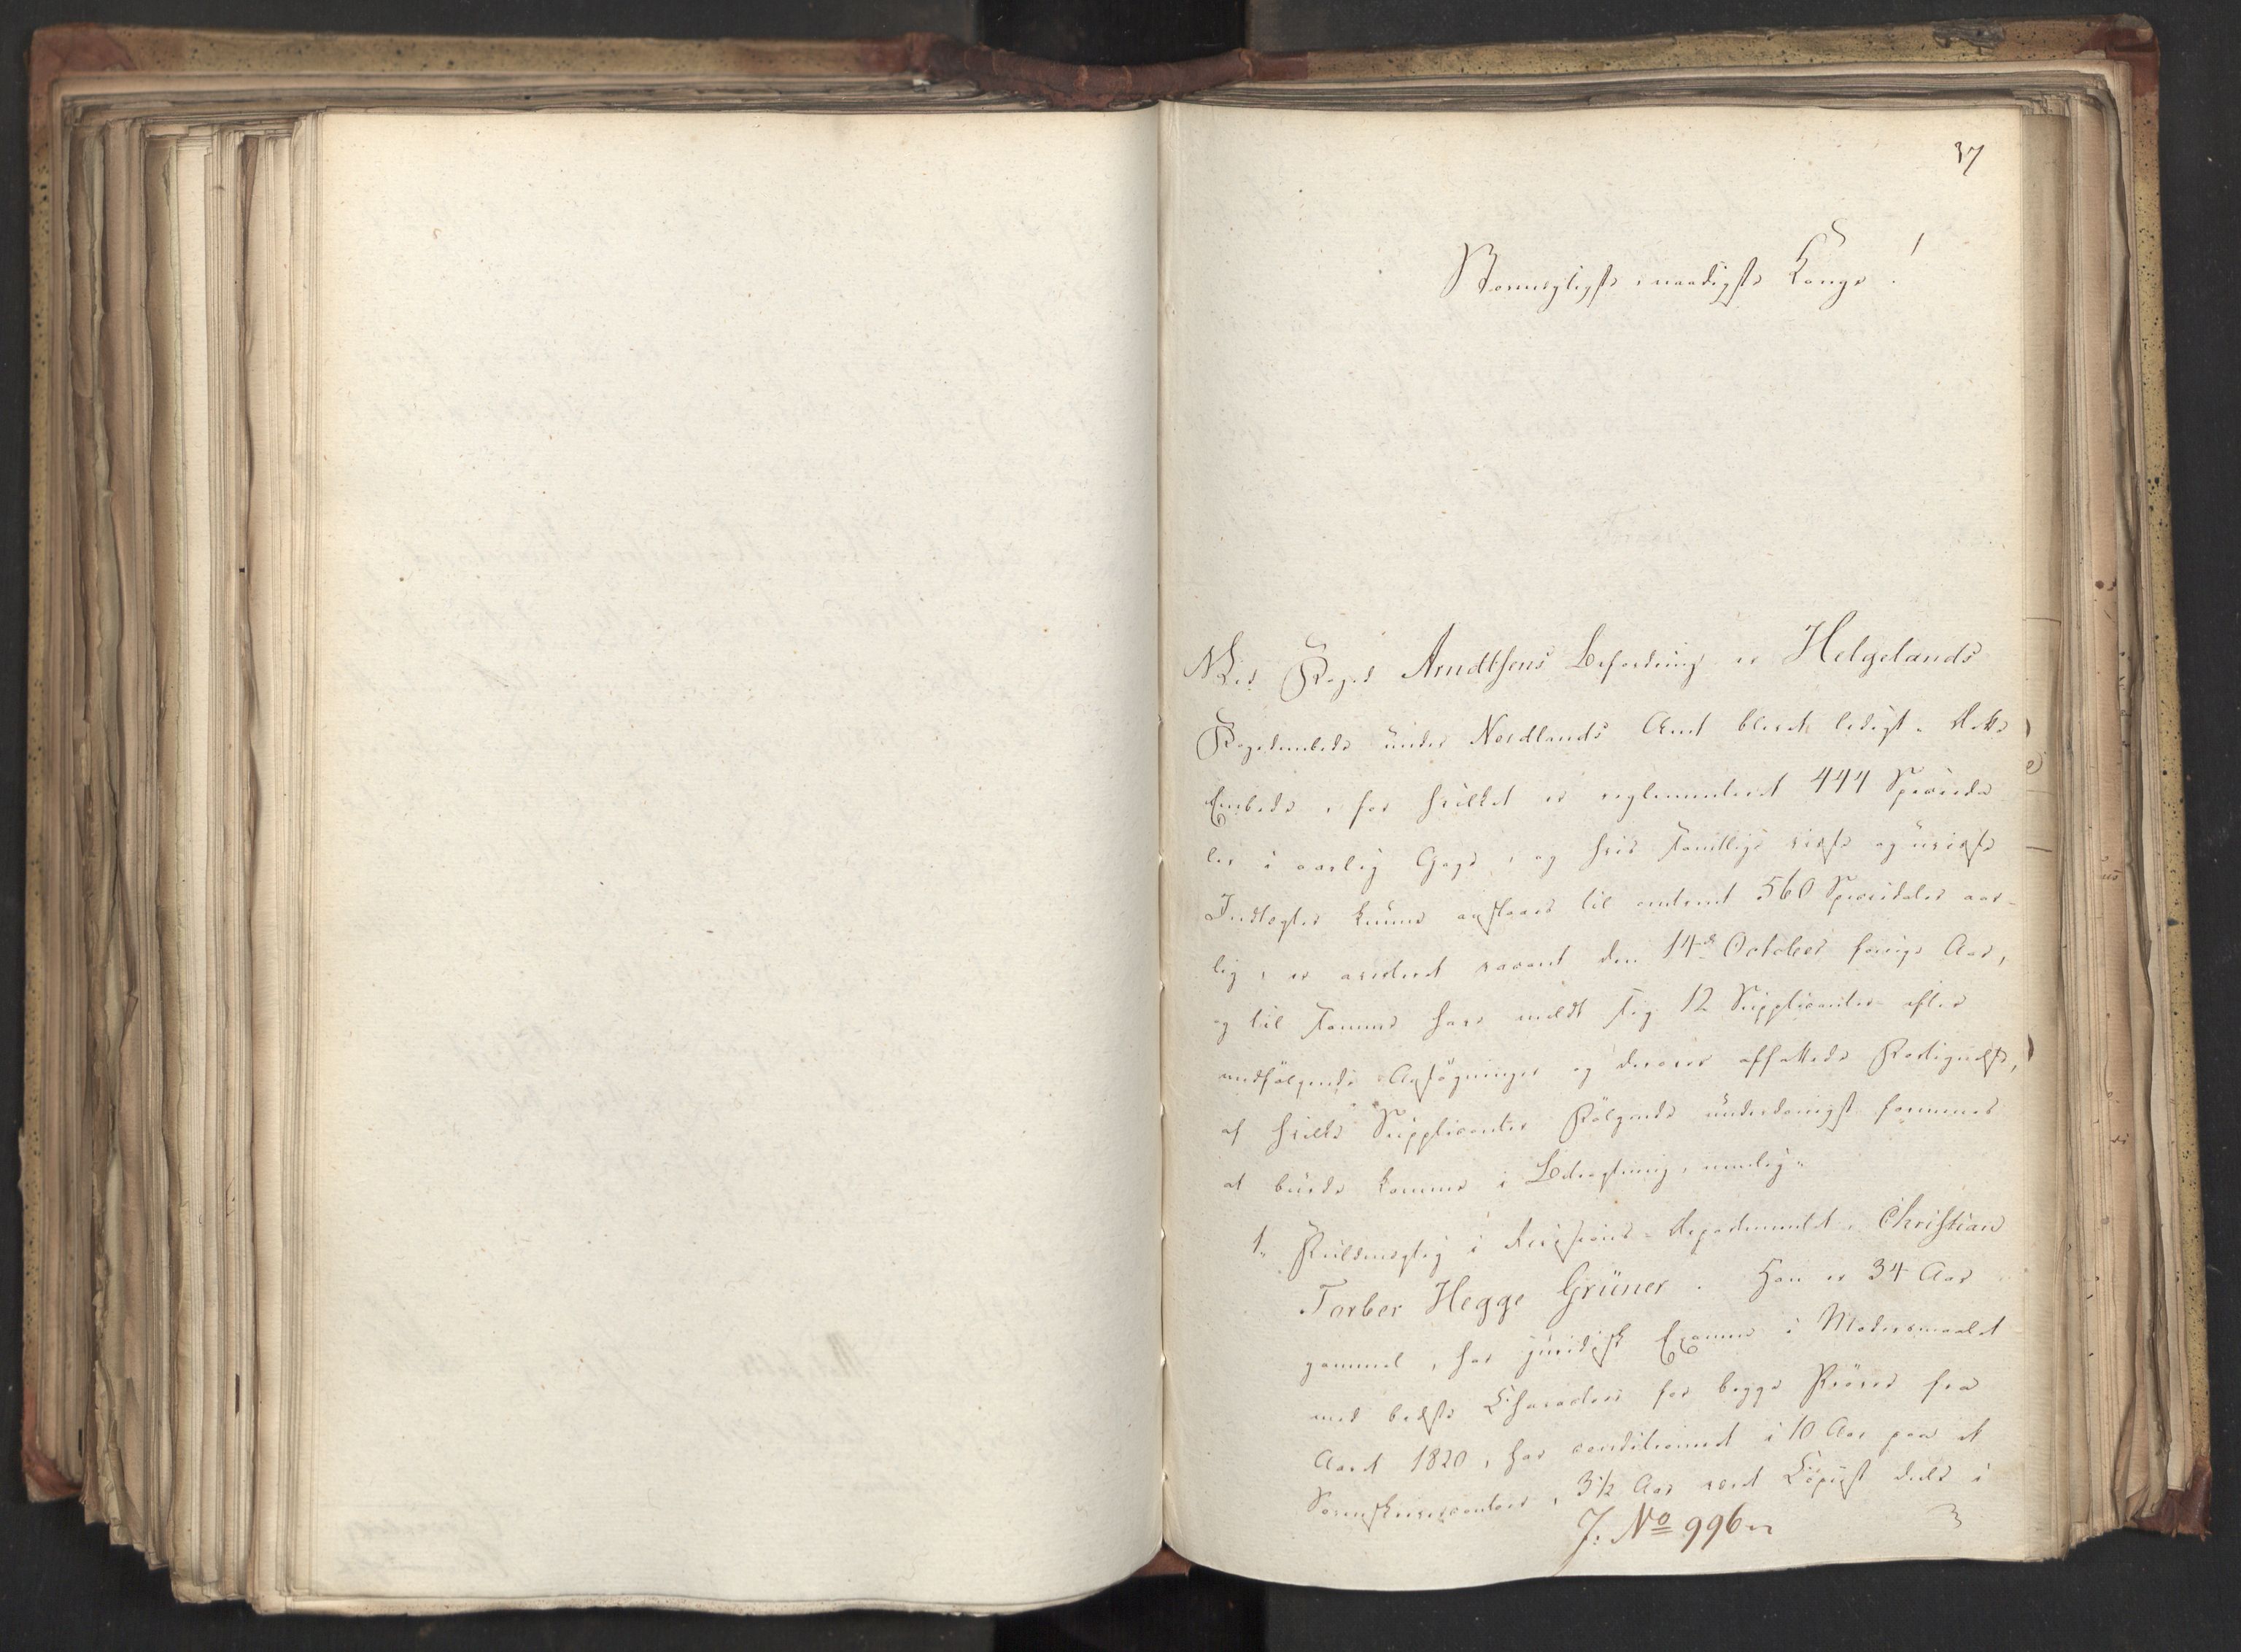 37
Stormægtigste, naadigste Konge!
Ved Foged Arndtsens Befordring er Helgelands
Fogedembede under Nordlands Amt blevet ledigt. Dette
Embede, for hvilket er reglementeret 444 Specieda-
ler i aarlig Gage, og hvis samtlige visse og uvisse
Indtægter kunne ansslaaes til omtrent 560 Speciedaler aar-
lig, er averteret vacant den 14de October forrige Aar,
og til samme have meldt sig 12 Supplicanter efter
medfølgende Ansøgninger og derover affattede Fortegnelse,
af hvilke Supplicanter Følgende underdanigst formenes
at burde komme i Betragtning, nemlig:
1. Fuldmægtig i Revisions-Departementet, Christian
Torber Hegge Grüner. Han er 34 Aar
gammel, har juridisk Examen i Modersmaalet
med bedste Characteer for begge Prøver fra
Aaret 1820, har conditioneret i 10 Aar paa et
Sorenskrivercontoir, 3½ Aar været Copist deels i
J: No 996